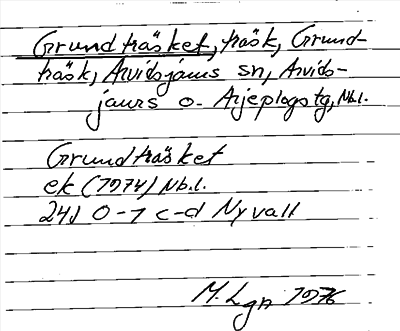 Grundträsket, träsk, Grund-
träsk, Arvidsjaurs sn, Arvids-
jaurs o. Arjeplogs tg, Nb.l.
Grundträsket
ek (1974) Nb.l.
24J 0-1 c-d Nyvall
M. Lgn 1976